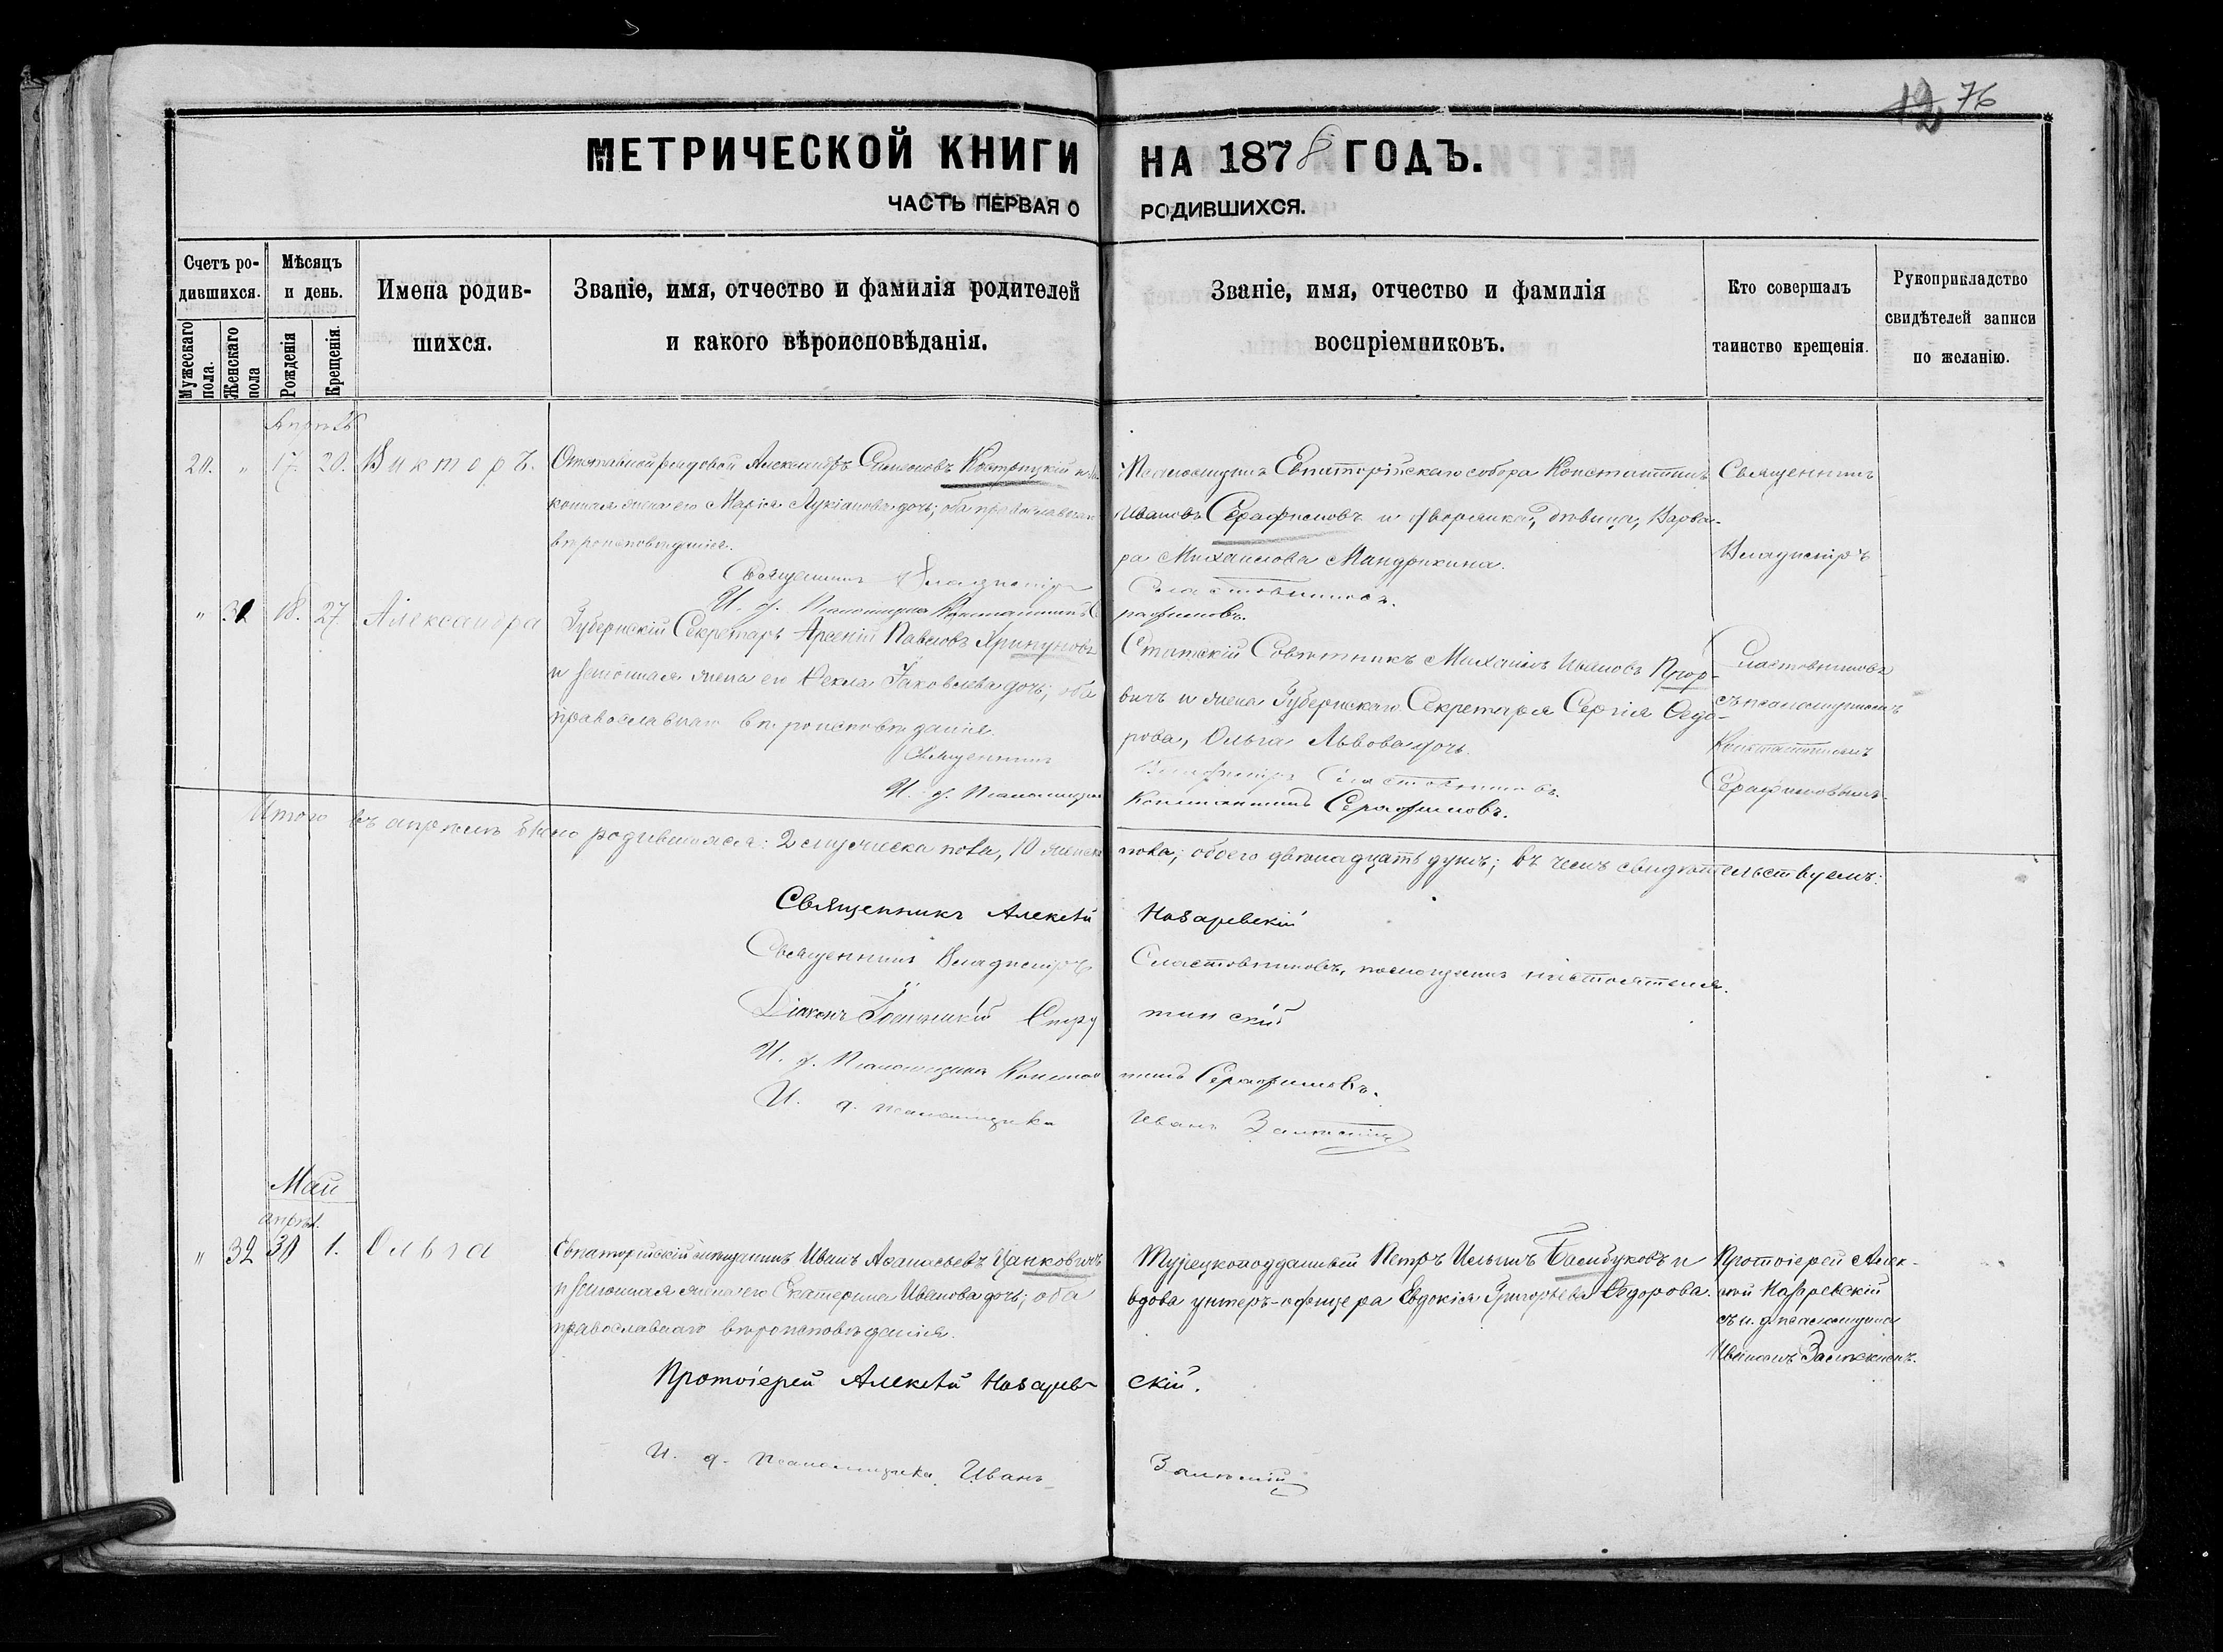 12 76
МЕТРИЧЕСКОЙ КНИГИ НА 1878 ГОДЪ.
ЧАСТЬ ПЕРВАЯ О РОДИВШИХСЯ.
Счетъ ро-
дившихся.
Мужескаго пола.
Женскаго пола
Мѣсяцъ
и день.
Рожденія
Крещенія.
Имена родив-
шихся.
Званіе, имя, отчество и фамилія родителей
и какого вѣроисповѣданія.
Званіе, имя, отчество и фамилія
воспріемниковъ.
Кто совершалъ
таинство крещенія.
Рукоприкладство
свидѣтелей записи
по желанію.
20. " 17. 20. Викторъ.
Отставной рядовой Александръ Симеоновъ и за-
конная жена его Марія Лукіанова дочь; оба православнаго
вѣроисповѣданія.
Псаломщикъ Евпаторійскаго собора Константинъ
Ивановъ Серафимовъ и дворянка, дѣвица, Варва-
ра Михаилова Мандрыкина.
Священникъ
Владиміръ
Священникъ Владиміръ Сластовниковъ.
И. д. Псаломщика Константинъ Серафимовъ.
" 31 18. 27 Александра
Губернскій Секретарь Арсеній Павловъ Хрипуновъ
и законная жена его Ѳекла Іаковлева дочь; оба
православнаго вѣроисповѣданія.
Статскій Совѣтникъ Михаилъ Ивановъ
вичъ и жена Губернскаго Секретаря Сергія Ѳедо-
рова, Ольга Львова дочь.
Сластовниковъ
съ псаломщикомъ
Константиномъ
Серафимовымъ.
Священникъ Владиміръ Сластовниковъ.
И. д. Псаломщика Константинъ Серафимовъ.
Итого въ апрѣлѣ было родившихся: 2 мужеска пола, 10 женска пола; обоего двѣнадцать душъ; въ чемъ свидѣтельствуемъ:
Священникъ Алексѣй Назаревскій
Священникъ Владиміръ Сластовниковъ, помощникъ настоятеля.
Діаконъ
И. д. Псаломщика Константинъ Серафимовъ.
И. д. псаломщика Иванъ Залѣскій
Май
апрѣл.
" 32 30 1. Ольга
Евпаторійскій мѣщанинъ Иванъ Аѳанасьевъ Цанковичъ
и законная жена его Екатерина Иванова дочь; оба
православнаго вѣроисповѣданія.
Турецкоподданный Петръ Ильинъ и
вдова унтеръ-офицера Евдокія Григорьева Ѳедорова.
Протоіерей Алек-
сѣй Назаревскій
съ и. д. псаломщика
Иваномъ Залѣскимъ.
Протоіерей Алексѣй Назарев-скій.
И. д. псаломщика Иванъ Залѣскій